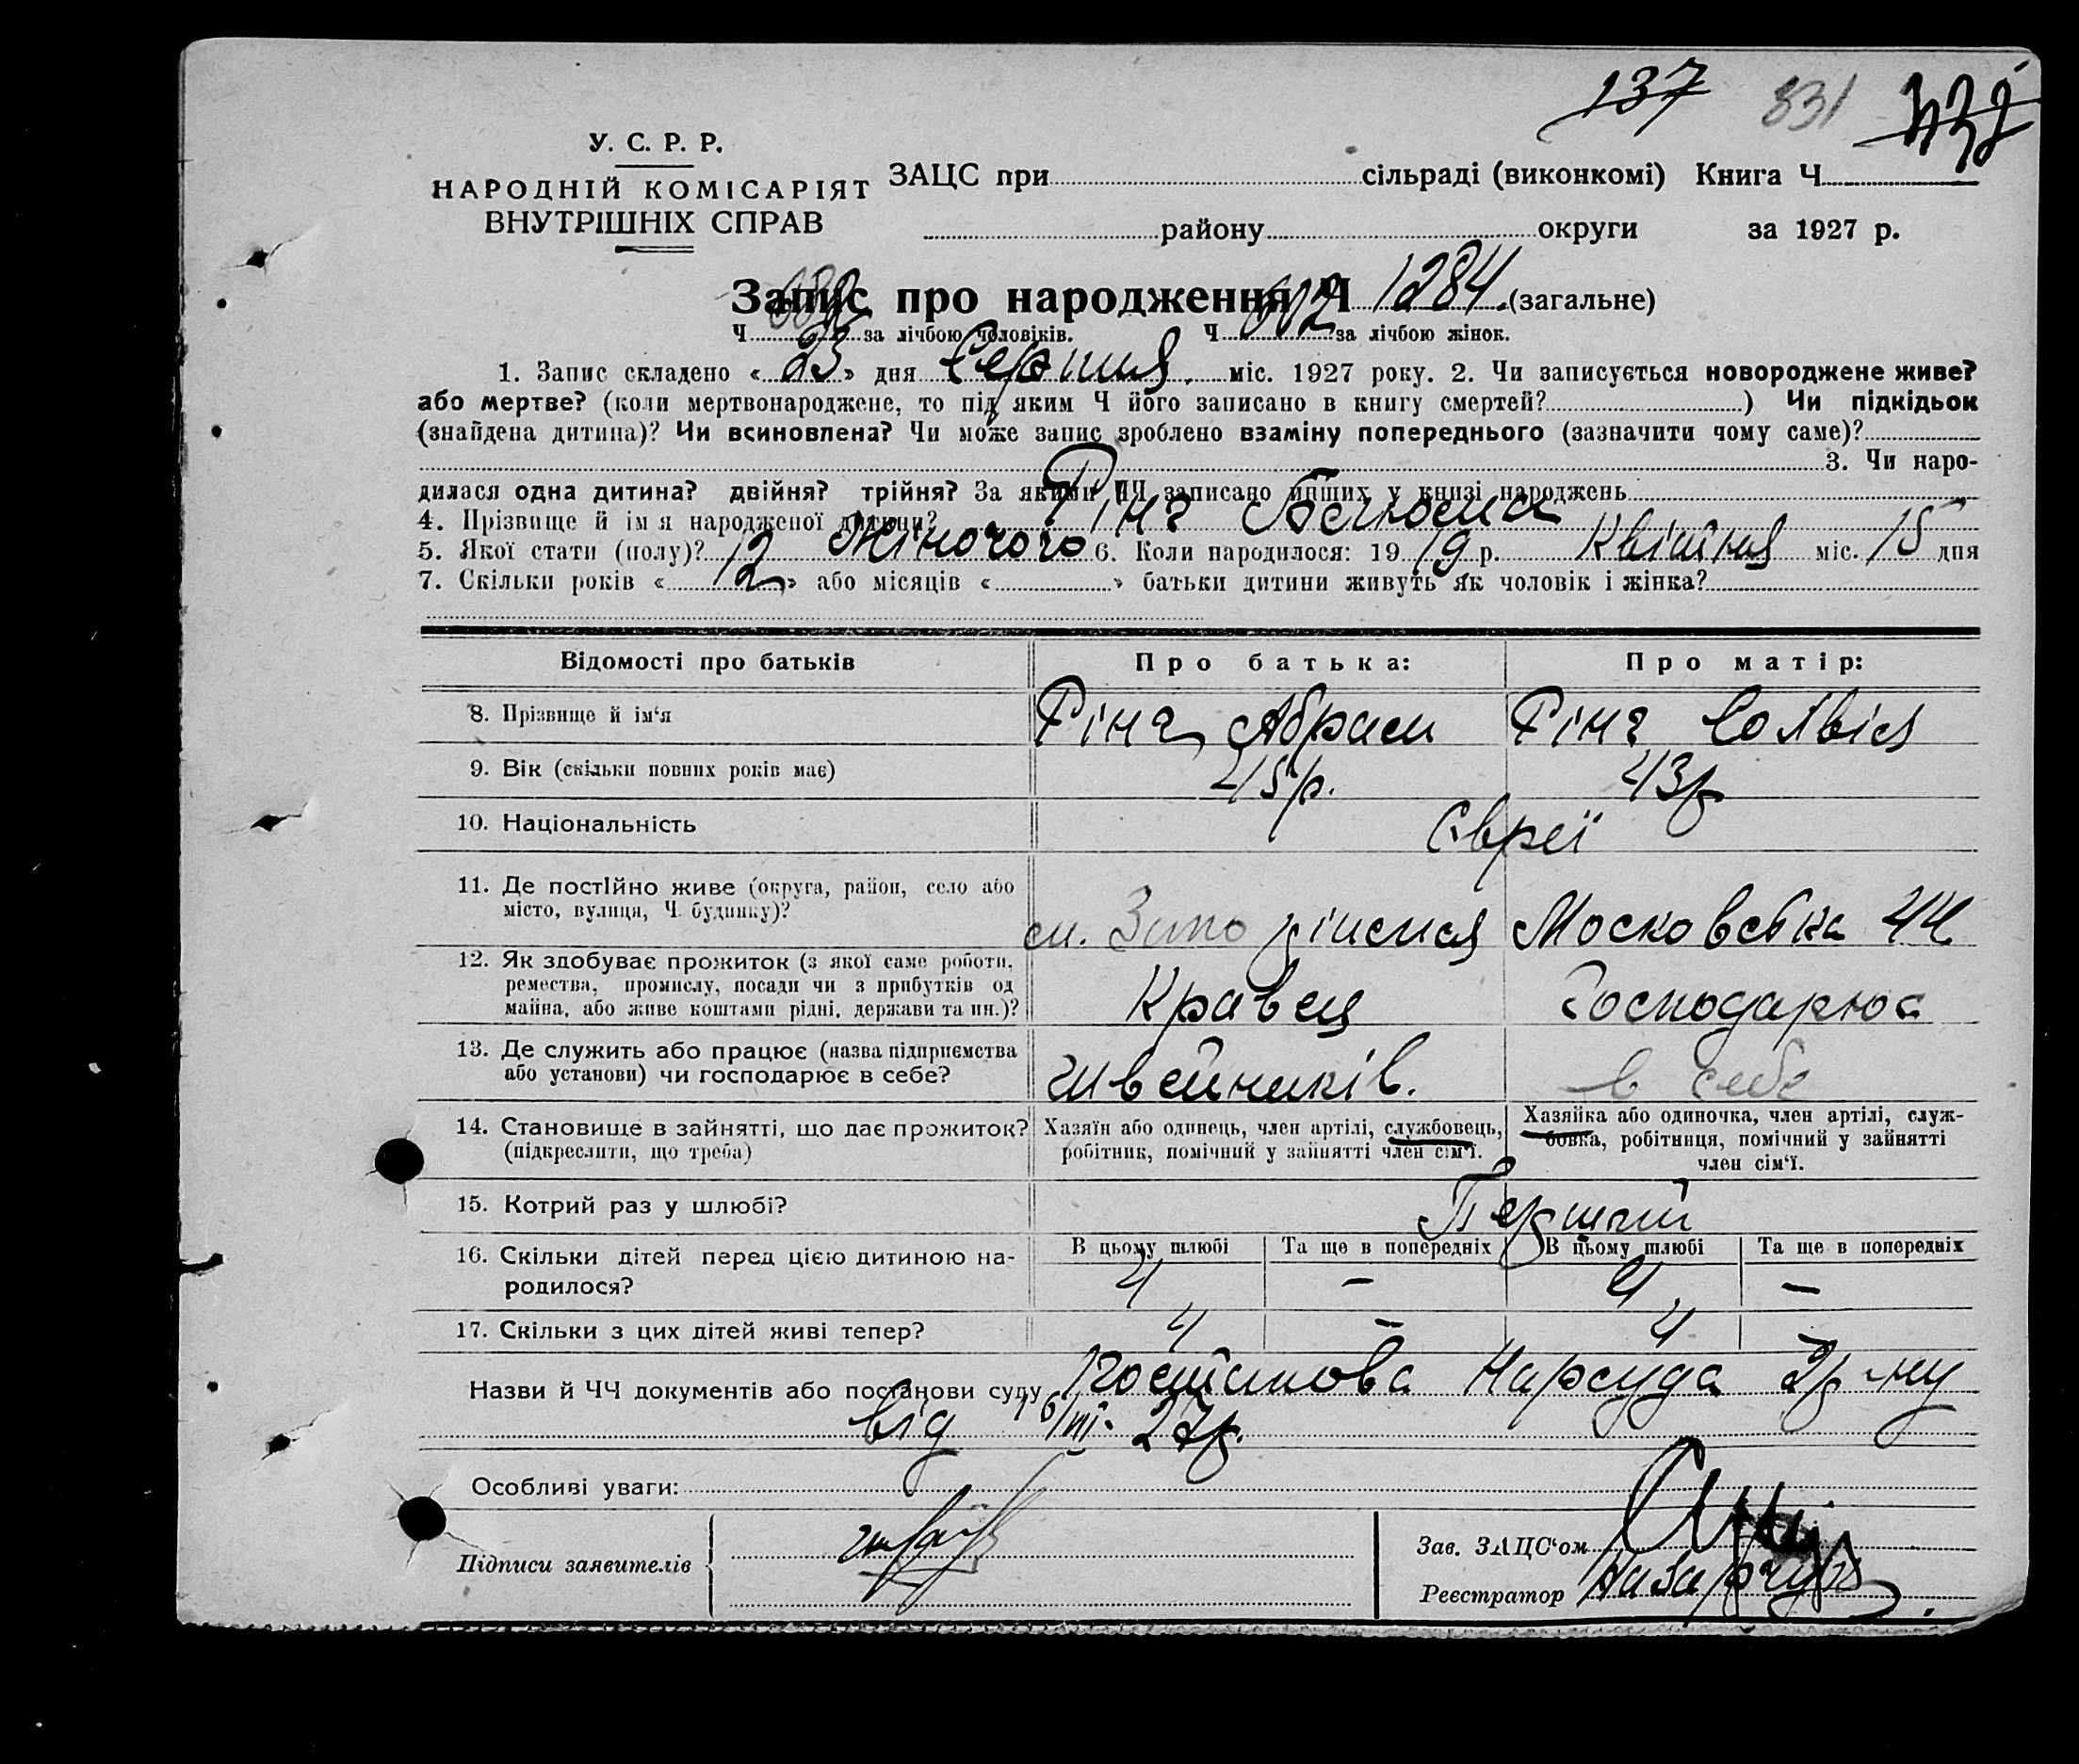 137 831
У. С. Р. Р.
НАРОДНІЙ КОМІСАРІЯТ
ВНУТРІШНІХ СПРАВ
ЗАЦС при сільраді (виконкомі) Книга Ч
району округи за 1927 р.
Запис про народження Ч 1284 (загальне)
Ч за лічбою чоловіків. Ч 602 за лічбою жінок.
1. Запис складено « 23 » дня Серпня міс. 1927 року. 2. Чи записується новороджене живе?
або мертве? (коли мертвонароджене, то під яким Ч його записано в книгу смертей? ) Чи підкідьок
(знайдена дитина)? Чи всиновлена? Чи може запис зроблено взаміну попереднього (зазначити чому саме)?
3. Чи наро-
дилася одна дитина? двійня? трійня? За якими ЧЧ записано инших у книзі народжень
4. Прізвище й ім я народженої дитини? Рінг
5. Якої стати (полу)? Жіночого 6. Коли народилося: 19 19 р. Квітня міс. 15 дня
7. Скільки років « 12 » або місяців « » батьки дитини живуть як чоловік і жінка?
Відомості про батьків Про батька: Про матір:
8. Прізвище й ім‘я Рінг Абрам Рінг
9. Вік (скільки повних років має) 45 р. 43 р
10. Національність Євреї
11. Де постійно живе (округа, район, село або
місто, вулиця, Ч. будинку)? м. Запоріжжя Московська 44
12. Як здобуває прожиток (з якої саме роботи,
ремества, промислу, посади чи з прибутків од
майна, або живе коштами рідні, держави та ин.)? Кравец Господарює
13. Де служить або працює (назва підприємства
або установи) чи господарює в себе? швейників. в себе
14. Становище в зайнятті, що дає прожиток?
(підкреслити, що треба)
Хазяїн або одинець, член артілі, службовець,
робітник, помічний у зайнятті член сім‘ї.
Хазяйка або одиночка, член артілі, служ-
бовка, робітниця, помічний у зайнятті
член сім‘ї.
15. Котрий раз у шлюбі? Перший
16. Скільки дітей перед цією дитиною на-
родилося?
В цьому шлюбі Та ще в попередніх В цьому шлюбі Та ще в попередніх
4 – 4 –
17. Скільки з цих дітей живі тепер? 4 – 4 –
Назви й ЧЧ документів або постанови суду Постанова Нарсуда
від 6/III 27 р.
Особливі уваги:
Підписи заявителів
Зав. ЗАЦС‘ом
Реєстратор